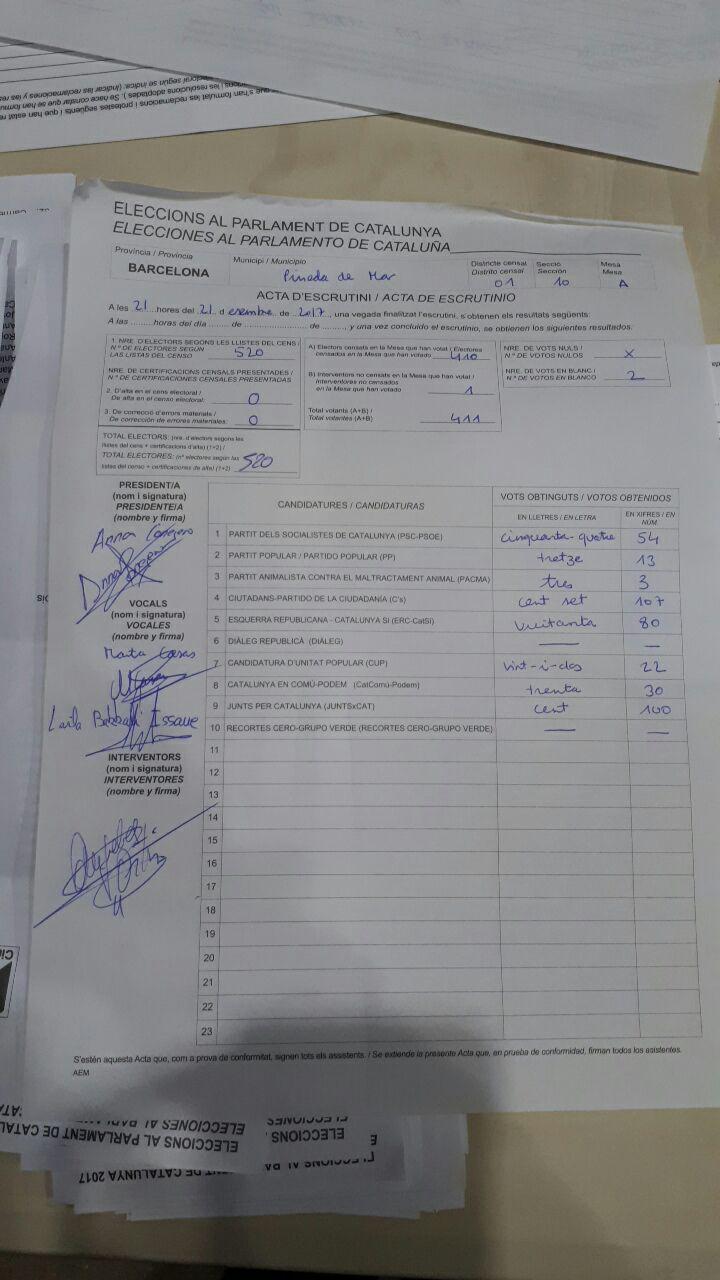 ELECCIONS AL PARLAMENT DE CATALUNYA
ELECCIONES AL PARLAMENTO DE CATALUÑA
Província / Provincia
BARCELONA
Municipi / Municipio
Pineda de Mar
Districte censal
Distrito censal
01
Secció
Sección
10
Mesa
Mesa
A
ACTA D'ESCRUTINI / ACTA DE ESCRUTINIO
A les 21 hores del 21 d de 2017, una vegada finalitzat l'escrutini, s'obtenen els resultats següents:
A las ......... horas del día ...... de .................... de ........., y una vez concluido el escrutinio, se obtienen los siguientes resultados:
1. NRE. D'ELECTORS SEGONS LES LLISTES DEL CENS /
Nº DE ELECTORES SEGÚN
LAS LISTAS DEL CENSO 520
NRE. DE CERTIFICACIONS CENSALS PRESENTADES /
Nº DE CERTIFICACIONES CENSALES PRESENTADAS
2. D'alta en cens electoral /
De alta en censo electoral: 0
3. De correcció d'errors materials /
De corrección de errores materiales: 0
TOTAL ELECTORS: (nre. d'electors segons les
llistes del cens + certificacions d'alta) (1+2) /
TOTAL ELECTORES: (nº electores según las
listes del censo + certificaciones de alta) (1+2) 520
A) Electors censats en la Mesa que han votat / Electores
censados en la Mesa que han votado 410
B) Interventors no censats en la Mesa que han votat /
Interventores no censados
en la Mesa que han votado 1
Total votants (A+B) /
Total votantes (A+B) 411
NRE. DE VOTS NULS /
Nº DE VOTOS NULOS X
NRE. DE VOTS EN BLANC /
Nº DE VOTOS EN BLANCO 2
PRESIDENT/A
(nom i signatura)
PRESIDENTE/A
(nombre y firma)
Anna
VOCALS
(nom i signatura)
VOCALES
(nombre y firma)
Marta Casas
Laila Issaue
INTERVENTORS
(nom i signatura)
INTERVENTORES
(nombre y firma)
CANDIDATURES / CANDIDATURAS
VOTS OBTINGUTS / VOTOS OBTENIDOS
EN LLETRES / EN LETRA
EN XIFRES / EN NÚM.
1 PARTIT DELS SOCIALISTES DE CATALUNYA (PSC-PSOE) cinquanta-quatre 54
2 PARTIT POPULAR / PARTIDO POPULAR (PP) tretze 13
3 PARTIT ANIMALISTA CONTRA EL MALTRACTAMENT ANIMAL (PACMA) tres 3
4 CIUTADANS-PARTIDO DE LA CIUDADANÍA (C's) cent set 107
5 ESQUERRA REPUBLICANA - CATALUNYA SÍ (ERC-CatSí) vuitanta 80
6 DIÀLEG REPUBLICÀ (DIÀLEG) — —
7 CANDIDATURA D'UNITAT POPULAR (CUP) vint-i-dos 22
8 CATALUNYA EN COMÚ-PODEM (CatComú-Podem) trenta 30
9 JUNTS PER CATALUNYA (JUNTSxCAT) cent 100
10 RECORTES CERO-GRUPO VERDE (RECORTES CERO-GRUPO VERDE) — —
11
12
13
14
15
16
17
18
19
20
21
22
23
S'estén aquesta Acta que, com a prova de conformitat, signen tots els assistents. / Se extiende la presente Acta que, en prueba de conformidad, firman todos los asistentes.
AEM
ELECCIONES AL PARLAMENT DE CATAL
ELECCIONES AL
ELECCIONS
CATALUNYA 2017